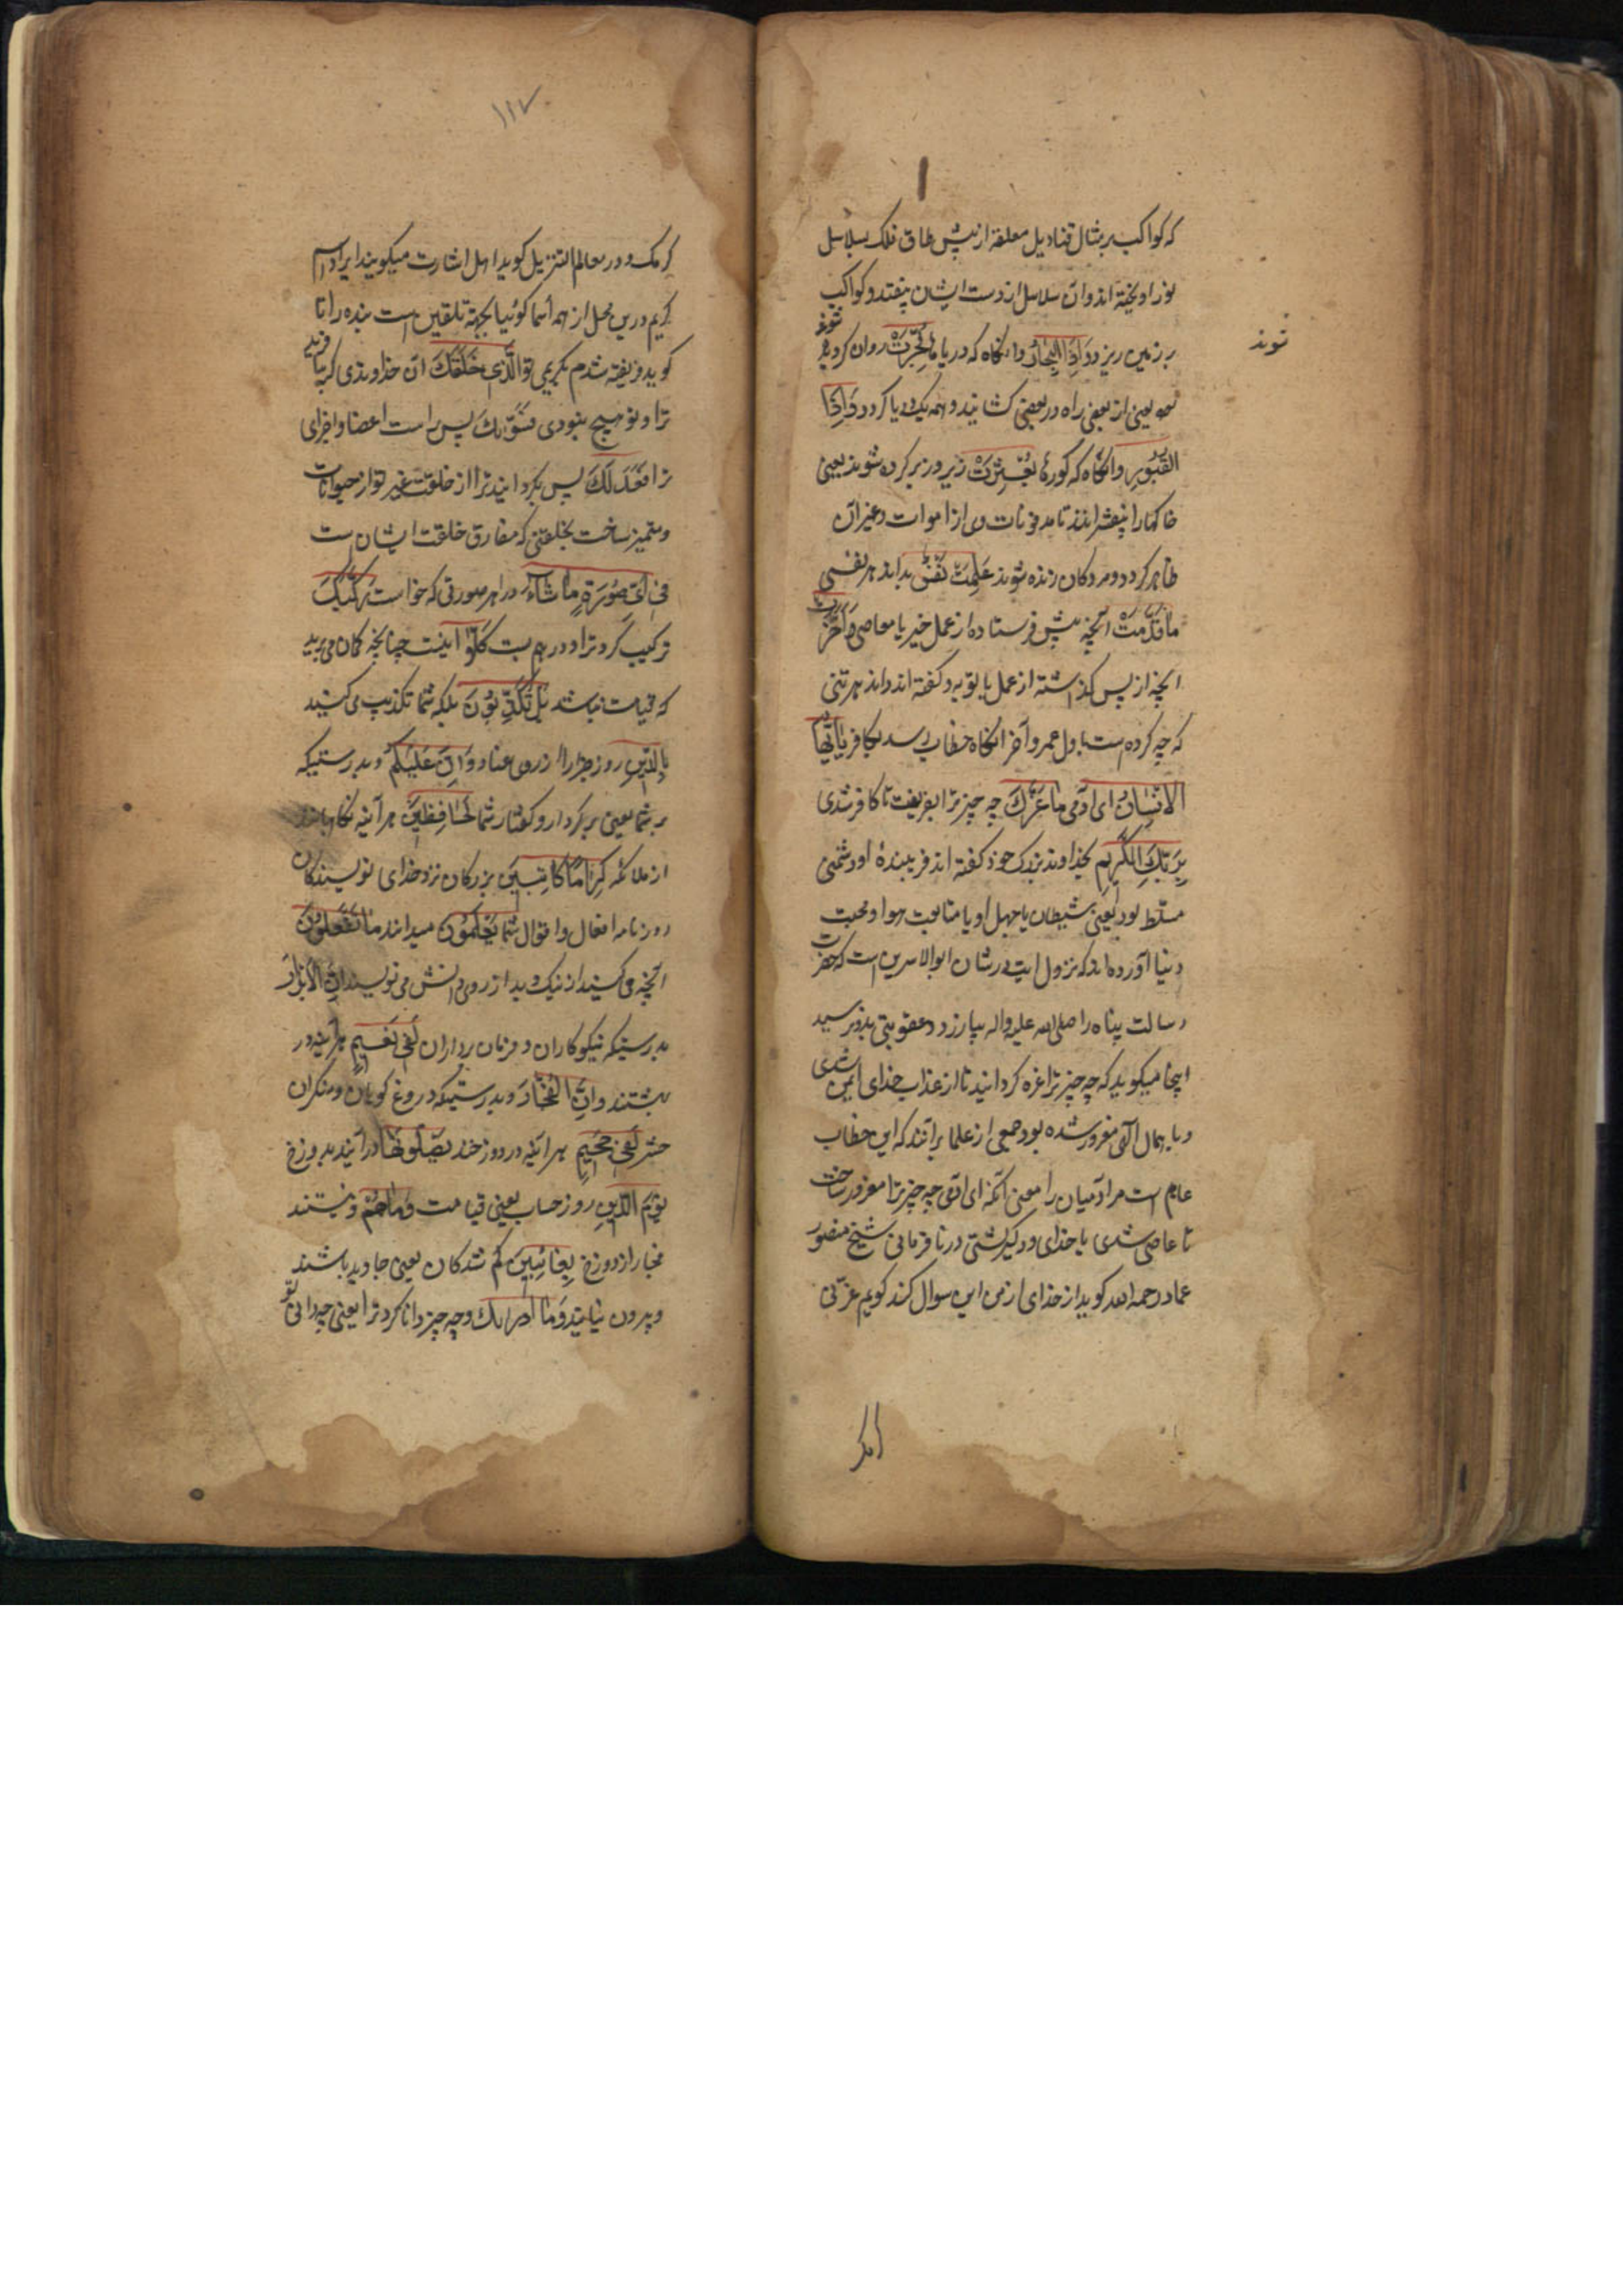 که کواکب بر مثال قنادیل معلقه از پیش طاق فلک بسلاسل
نور اویخته اند و آن سلاسل از دست ایشان بیفتد و کواکب
بر زمین ریزد وَاِذَا البِحَارُ وانگاه که دریاها فُجِّرَتْ روان کرده شوند
شوند
یعنی از بعضی راه در بعضی کشایند و همه یک دریا کردد وَاِذَا
القُبُورُ وانگاه که کورها بُعْثِرَتْ زیر و زبر کرده شوند یعنی
خاکها را بیفشرانند تا مدفونات وی از اموات و غیر آن
ظاهر کردد و مردکان زنده شوند عَلِمَتْ نَفْسٌ بداند هر نفسی
مَا قَدَّمَتْ آنچه پیش فرستاده از عمل خیر یا معاصی وَاَخَّرَتْ
آنچه از پس کذاشته از عمل یا توبه و کفته اند داند هر تنی
که چه کرده است باول عمر و آخر انکاه خطاب رسد بکافر یَا اَیُّهَا
الاِنْسَانُ ای آدمی مَا غَرَّكَ چه چیز ترا بفریفت تا کافر شدی
بِرَبِّكَ الْكَرِیمِ بخداوند بزرک خود کفته اند فریبندۀ او دشمنی
مسلّط بود یعنی شیطان یا جهل او یا متابعت هوا و محبت
دنیا آورده اند که نزول ایت در شان ابوالاسدین است که حضرت
رسالت پناه را صلی الله علیه واله بیازرد و عقوبتی بدو نرسید
اینجا میکوید که چه چیز ترا غره کردانید تا از عذاب خدای ایمن شدی
و بامهال الهی مغرور شده بود جمعی از علما برآنند که این خطاب
عام است مر آدمیان را معنی آنکه ای آدمی چه چیز ترا مغرور ساخت
تا عاصی شدی با خدای و دلیر کشتی در نافرمانی شیخ منصور
عماد رحمه الله کوید اگر خدای از من این سوال کند کویم غرّنی
کرمک
۱۱۷
کرمک و در معالم التنزیل کوید اهل اشارت میکویند ایراد اسم
کریم درین محل از همه اسما کوئیا بجهة تلقین است بنده را تا
کوید فریفته شدم بکریمی تو الَّذِی خَلَقَكَ آن خداوندی که بیافرید
ترا و تو هیچ نبودی فَسَوّٰیكَ پس راست اعضا و اجزای
ترا فَعَدَلَكَ پس بکردانید ترا از خلقت غیر تو از حیوانات
و متمیز ساخت بخلقتی که مفارق خلقت ایشان است
فِی اَیِّ صُورَةٍ مَا شَاءَ در هر صورتی که خواست رَكَّبَكَ
ترکیب کرد ترا و در هم بست كَلَّا نه اینست چنانچه کمان می برید
که قیامت نباشد بَلْ تُكَذِّبُونَ بلکه شما تکذیب می کنید
بِالدِّینِ روز جزا را از روی عناد وَاِنَّ عَلَیْكُمْ و بدرستیکه
بر شما یعنی بر کردار و کفتار شما لَحَافِظِینَ هر آئینه نکاهبانند
از ملائکه كِرَامًا كَاتِبِینَ بزرکان نزد خدای نویسندکان
روزنامه افعال و اقوال شما یَعْلَمُونَ میدانند مَا تَفْعَلُونَ
آنچه می کنید از نیک و بد از روی دانش می نویسند اِنَّ الاَبْرَارَ
بدرستیکه نیکوکاران و فرمان برداران لَفِی نَعِیمٍ هرآینه در
بهشتند وَاِنَّ الفُجَّارَ و بدرستیکه دروغ کویان و منکران
حشر لَفِی جَحِیمٍ هر آئینه در دوزخند یَصْلَوْنَهَا درآیند بدوزخ
یَوْمَ الدِّینِ روز حساب یعنی قیامت وَمَا هُمْ و نیستند
فجار از دوزخ بِغَائِبِینَ کم شدکان یعنی جاوید باشند
و بیرون نیایند وَمَا اَدْرٰیكَ و چه چیز دانا کرد ترا یعنی چه دانی تو